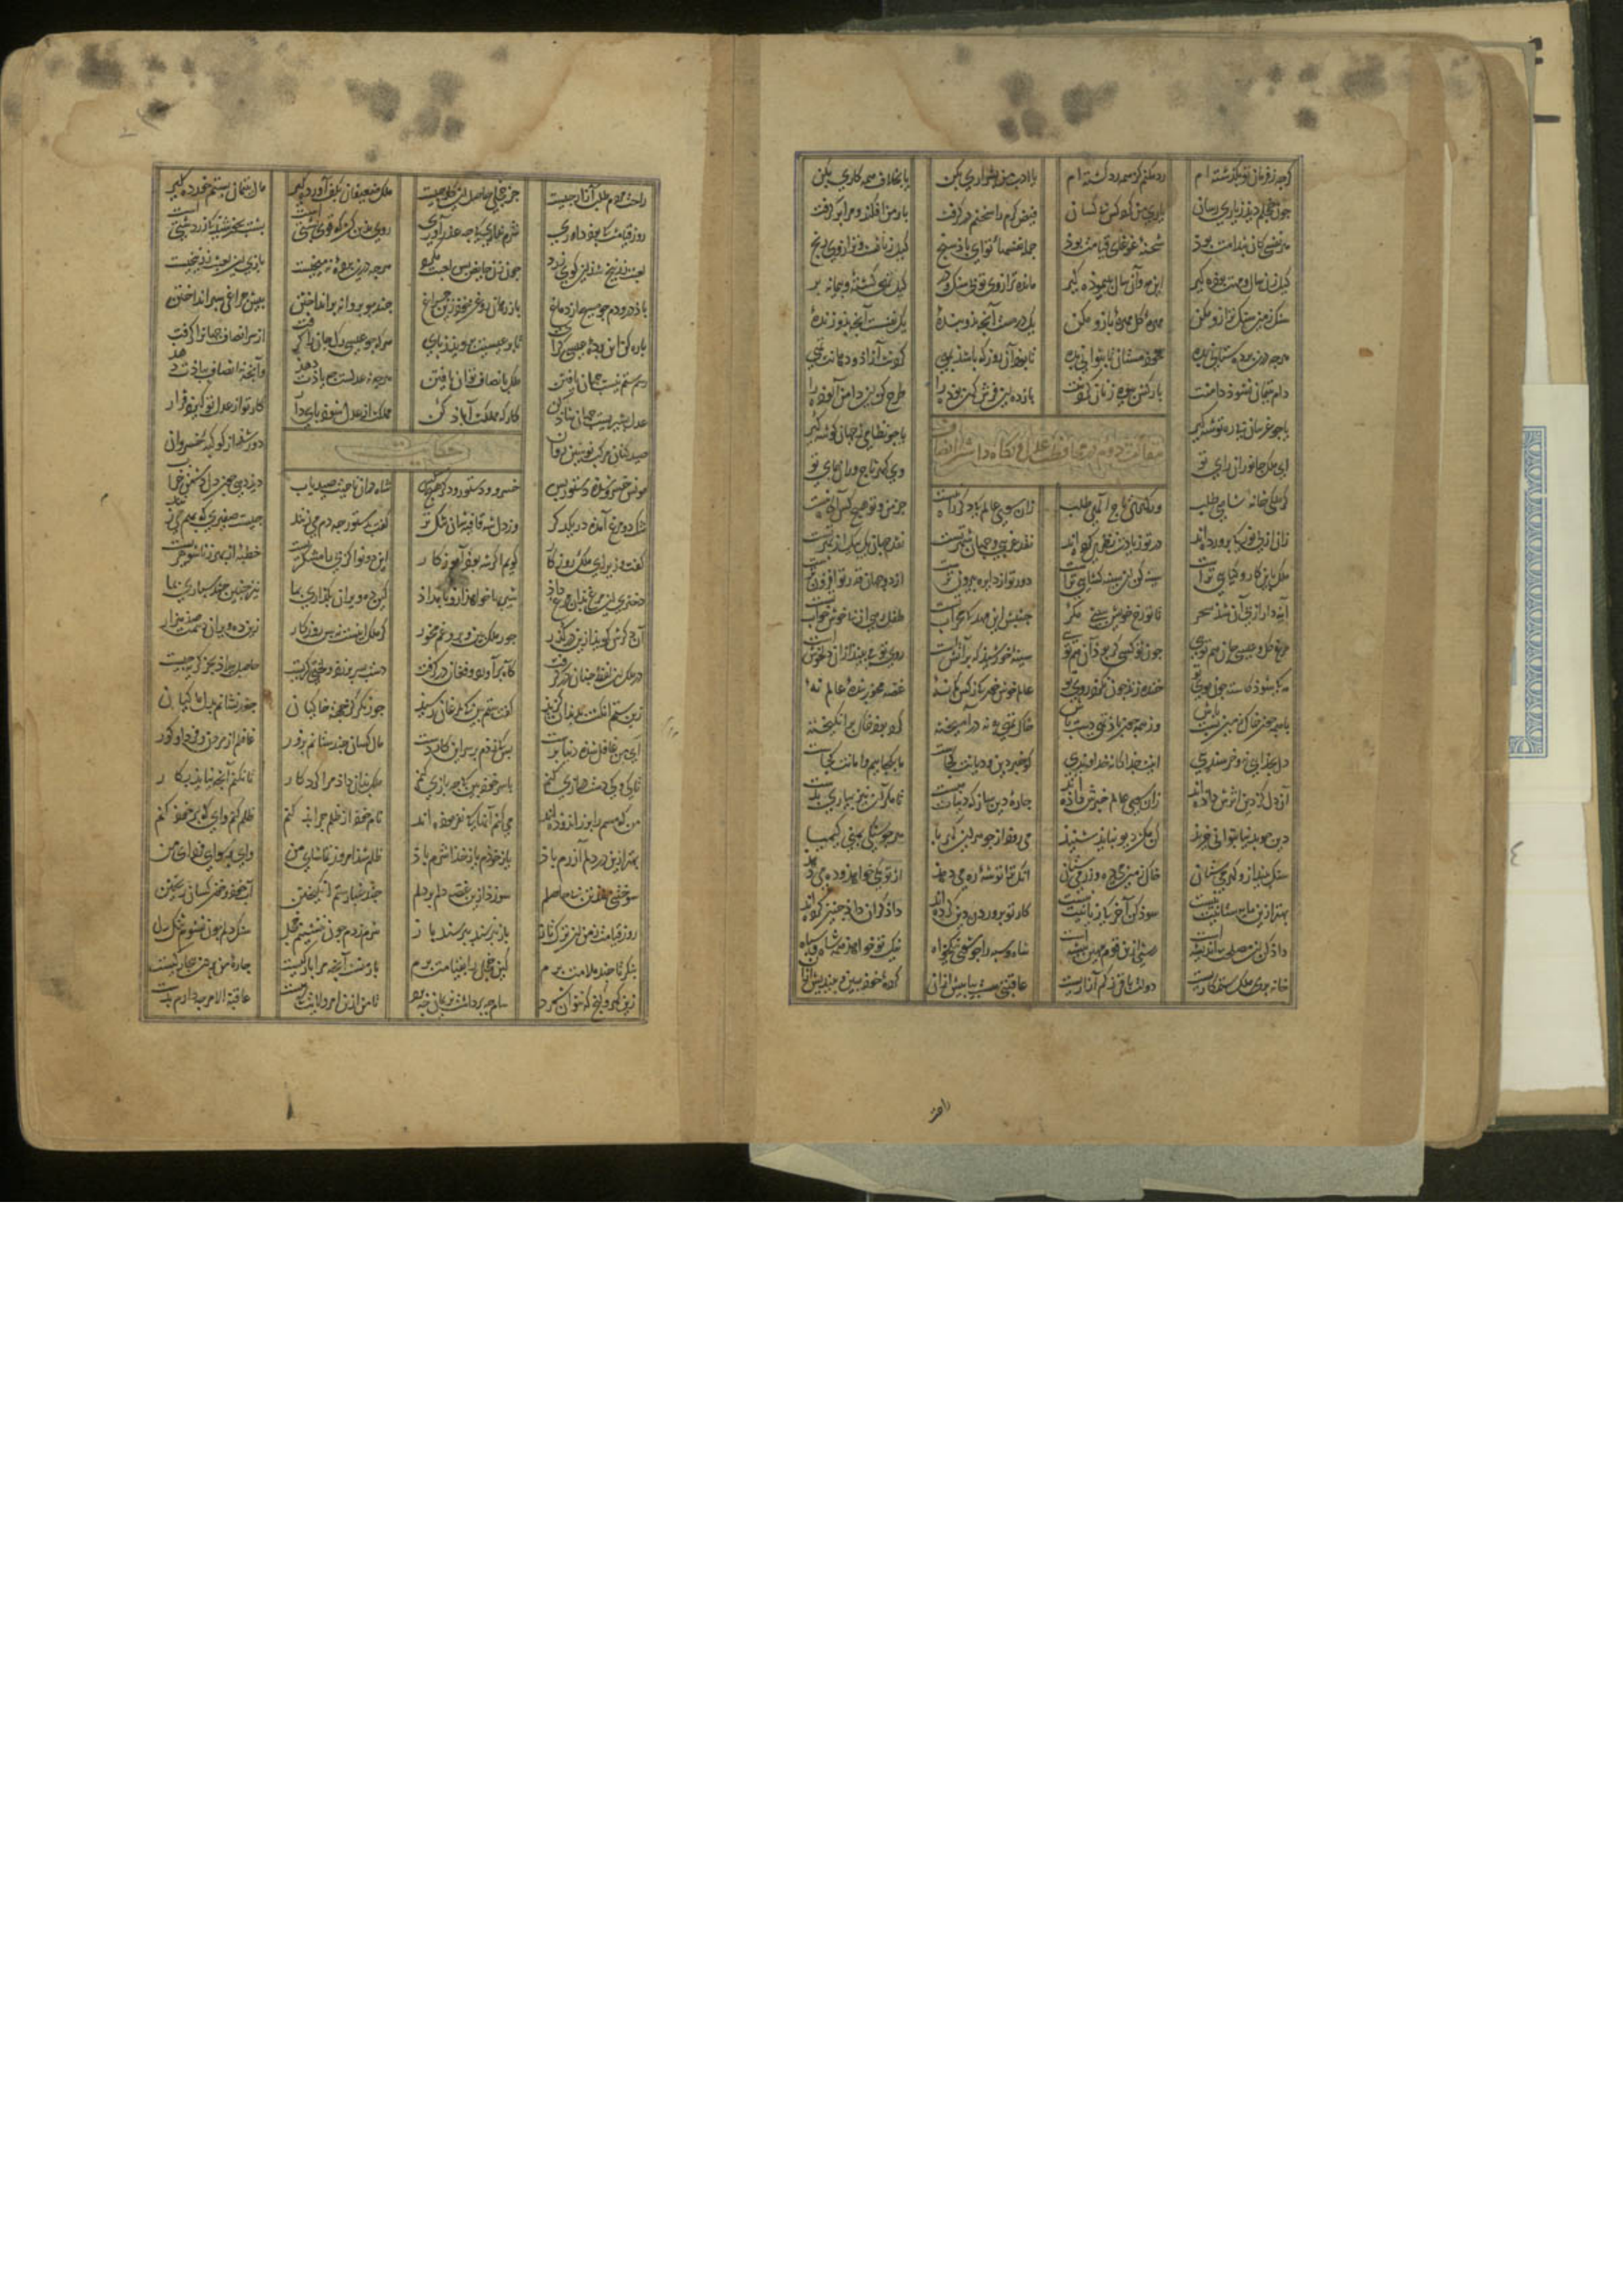 گرچه ز فرمان تو بگذشته ام رد مکنم کز همه رد گشته ام یا ادب من بشراری بکن یا بخلاف همه کاری بکن
چون خجلم دید ز یاری رسان یاری من کرد کس بی کسان فیض کرم را سخنم در گرفت بار من افکند و مرا برگرفت
هر نفسی کان بندامت بود شحنهٔ غوغای قیامت بود جمله نفسهاء تو ای باذ سنج کیل زیانست و ترازوی رنج
کیل زیان سال و مهت بوده گیر این مه و آن سال بپیموده گیر مانده ترازوی تو بی سنگ و در کیل تهی گشته و پیمانه پر
سنگ زمین سنگ ترازو مکن مهرهٔ گل مهرهٔ بازو مکن یک درمست آنچه بذو بندهٔ یک نفسست آنچه بذو زندهٔ
هرچه درین پرده ستانی بده خود مستان تا بتوانی بده تا بود آن روز که باشد بهی گردنت آزاد و دهانت تهی
دام یتیمان نشود دامنت بارکش بیوه زنان گردنت باز ده این فرش کهن بوده را طرح کن این دامن آلوده را
یا چو غریبان پی ره توشه گیر یا چو نظامی ز جهان گوشه گیر
مقالت دوم در محافظت عدل و نگاه داشتن انصاف
ای ملک جانوران رای تو وی گهر تاج وران پای تو
گر ملکی خانه شاهی طلب ور گهری تاج الهی طلب زان سوی عالم که دگر راه نیست جز من و تو هیچ کس آگاه نیست
زان ازلی نور که پرورده اند در تو زیادت نظری کرده اند نقد غریبی و جهان شهر تست نقد جهان یک بیک از بهر تست
ملک بدین کار و کیایی تراست سینه کن این سینه گشایی تراست دور تو از دایره بیرون ترست از دو جهان قدر تو افزون ترست
آینه دار از پی آن شد سحر تا تو رخ خویش ببینی مگر جنبش این مهد که محراب تست طفل
مرغ دل و عیسی جان هم تویی چون تو کسی گر بود آن هم تویی سینهٔ خورشید که پر آتش است روی تو می بیند از آن دلخوش است
مه که شود کاسته چون موی تو خنده زند چون نگرد روی تو عالم خوش خور که ز کس کم نهٔ غصه مخور بندهٔ عالم نهٔ
با همه چون خاک زمین پست باش وز همه چون باد تهی دست باش خاک تهی به نه درآمیخته گرد بود خاک برانگیخته
دل بخدا برنه و خرسندیی اینت جداگانه خداوندیی گر خبر دین و دیانت کجاست ما بکجاییم و امانت کجاست
آن دل کز دین اثرش داده اند زان سوی عالم خبرش داده اند چارهٔ دین ساز که دنیات هست تا مگر آن نیز بیاری بدست
دین چو بدنیا بتوانی خرید کن مکن دیو نباید شنید می رود از جوهر این کهربا هر جو سنگی بمنی کیمیا
سنگ بینداز و گهر می ستان خاک زمین می ده و زر می ستان آنک ترا توشهٔ ره می دهد از تو یکی خواهد و ده می دهد
بهتر ازین مایه ستانیت نیست سود کن آخر که زیانیت نیست کار تو پروردن دین کرده اند دادگران داد چنین کرده اند
شاه و سپه را چو شوی نیکخواه نیک تو خواهد همه شاه و سپاه
خانه بر ملک ستمکاریست دولت باقی ز کم آزاریست عاقبتی هست بیا پیش از آن کردهٔ خود بین و بیندیش از آن
راحت
راحت مردم طلب آزار چیست جز خجلی حاصل این کار چیست ملک ضعیفان بکف آورده گیر مال یتیمان بستم خورده گیر
روز قیامت که بود داوری شرم نداری که چه عذر آوری روی بدین کن که قوی پشتی است پشت بخورشید که زردشتی است
لعبت زرنیخ شد این گوی زرد چون زن حایض پس لعبت مگرد هرچه درین پرده نه میخیست بازی این لعبت زرنیخیست
باد درو دم چو مسیح از دماغ باز رهان روغن خود زین چراغ چند چو پروانه پر انداختن پیش چراغی سپر انداختن
پاره کن این پردهٔ عیسی گرای تا پر عیسیت بروید ز پای هرکه چو عیسی رگ جان را گرفت از سر انصاف جهان را گرفت
رسم ستم نیست جهان یافتن ملک بانصاف توان یافتن هرچه نه عدلست چه دادت دهد وآنچه نه انصاف ببادت دهد
عدل بشیریست جهان شاد کن کارگه مملکت آباد کن مملکت از عدل شود پای دار کار تو از عدل تو گیرد قرار
صیدکنان مرکب نوشین روان دور شد از کوکبهٔ خسروان
حکایت
مونس خسرو شده دستور بس خسرو و دستور و دگر هیچ کس شاه در آن ناحیت صید یاب دید دهی چون دل دشمن خراب
تنگ دو مرغ آمده در یکدگر وز دل شه قافیه شان تنگ تر گفت بدستور چه دم می زنند چیست صفیری که بهم می زنند
گفت وزیر ای ملک روزگار گویم اگر شه بود آموزگار این دو نوا نز پی رامشگریست خطبهٔ از بهر زناشوهریست
دختری این مرغ بدان مرغ داد شیربها خواهد ازو بامداد کین ده ویران بگذاری بما نیز چنین چند سپاری بما
آن دگرش گوید ازین درگذر جور ملک بین و برو غم مخور گر ملک اینست نه بس روزگار زین ده ویران دهمت صد هزار
در ملک این لفظ چنان درگرفت کاه برآورد و فغان درگرفت دست بسر بر زد و لختی گریست حاصل بیداد بجز گریه چیست
زین ستم انگشت بدندان گزید گفت ستم بین که بمرغان رسید جور نگر کز جهت خاکیان جغد نشانم بدل ماکیان
ای من غافل شده دنیا پرست بس که زنم بر سر ازین کار دست مال کسان چند ستانم بزور غافلم از مردن و فردا و گور
تا کی و کی دست درازی کنم با سر خود بین که چه بازی کنم ملک بدان داد مرا کردگار تا نکنم آنچه نیاید بکار
من که مسم را بزر اندوده اند می کنم آنها که نفرموده اند نام خود از ظلم چرا بد کنم ظلم کنم وای که بر خود کنم
بهتر ازین در دلم آزرم باد یا ز خودم یا ز خدا شرم باد ظلم شد امروز تماشای من وای برسوایی فردای من
سوختنی شد تن بی حاصلم سوزد ازین غصه دلم بر دلم چند غبار ستم انگیختن آب خود و خون کسان ریختن
روز قیامت ز من این ترک تاز باز بپرسند بپرسند باز شرم زدم چون ننشینم خجل سنگ دلم چون نشوم تنگ دل
بنگر تا چند ملامت برم کین خجلی را بقیامت برم بار منست آنچه مرا بارگیست چارهٔ من بر من بیچارگیست
زین گهر و گنج که نتوان شمرد سام چه برداشت فریدون چه برد تا من ازین امر و ولایت که هست عاقبة الامر چه دارم بدست